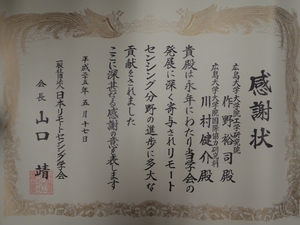 感謝状
広島大学大学院工学研究院
作野裕司殿
広島大学大学院国際協力研究科
川村健介殿
貴殿は永年にわたり当学会の
発展に深く寄与されリモート
センシング分野の進歩に多大な
貢献をされました
ここに深甚なる感謝の意を表します
平成二十五年五月十七日
一般社団法人日本リモートセンシング学会
会長 山口靖